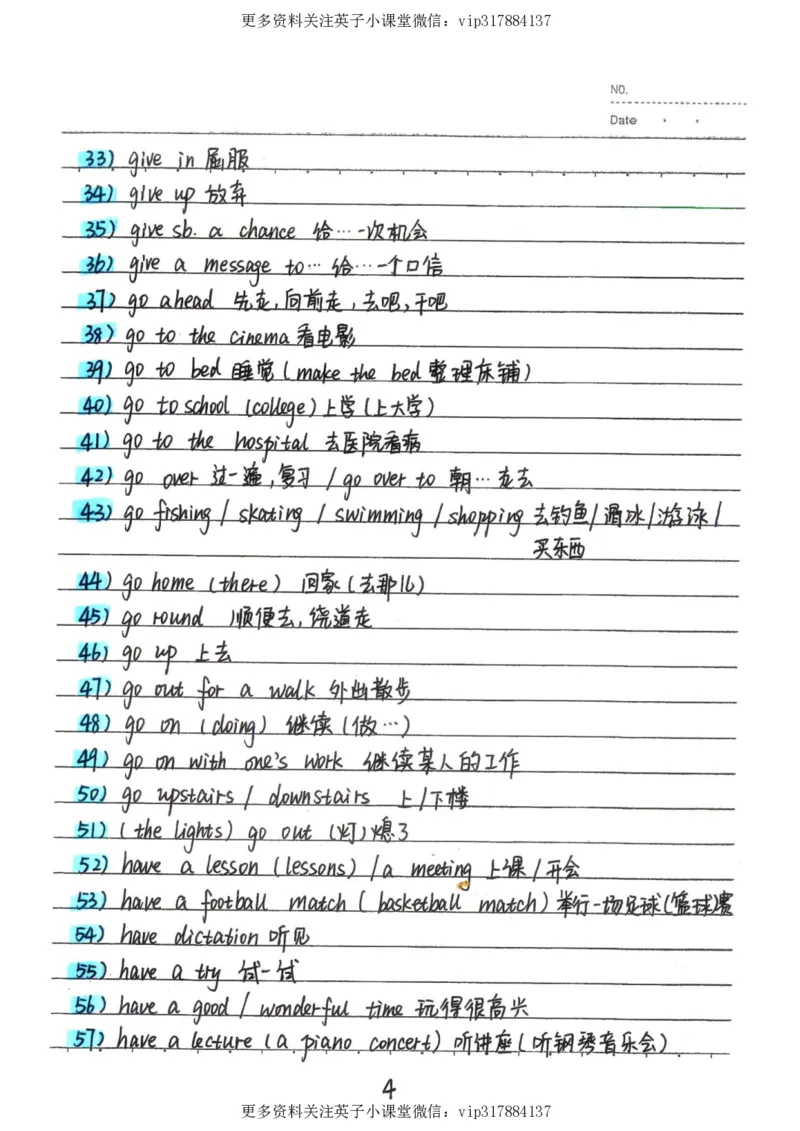 更多资料关注英子小课堂微信：vip317884137
NO.
Date
33) give in 屈服
34) give up 放弃
35) give sb. a chance 给…一次机会
36) give a message to… 给…一个口信
37) go ahead 先走,向前走,去吧,干吧
38) go to the cinema 看电影
39) go to bed 睡觉(make the bed 整理床铺)
40) go to school (college) 上学(上大学)
41) go to the hospital 去医院看病
42) go over 过一遍,复习 / go over to 朝…走去
43) go fishing / skating / swimming / shopping 去钓鱼/滑冰/游泳/
买东西
44) go home (there) 回家(去那儿)
45) go round 顺便去,绕道走
46) go up 上去
47) go out for a walk 外出散步
48) go on (doing) 继续(做…)
49) go on with one's work 继续某人的工作
50) go upstairs / downstairs 上/下楼
51) (the lights) go out (灯)熄了
52) have a lesson (lessons) / a meeting 上课/开会
53) have a football match (basketball match) 举行一场足球(篮球)赛
54) have dictation 听见
55) have a try 试一试
56) have a good / wonderful time 玩得很高兴
57) have a lecture (a piano concert) 听讲座(听钢琴音乐会)
4
更多资料关注英子小课堂微信：vip317884137